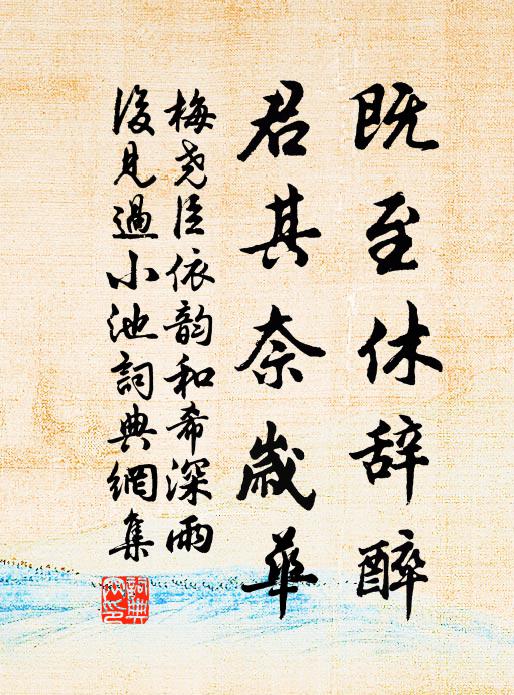 既至休辞醉
君其奈歲華
梅尧臣依韵和希深雨
後見過小池詞典網集